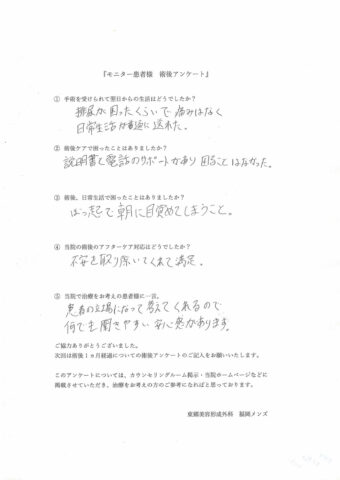 『モニター患者様 術後アンケート』
① 手術を受けられて翌日からの生活はどうでしたか？
排尿が困ったくらいで痛みはなく
日常生活が普通に送れた。
② 術後ケアで困ったことはありましたか？
説明書と電話のサポートがあり困ることはなかった。
③ 術後、日常生活で困ったことはありましたか？
ぼっ起で朝に目覚めてしまうこと。
④ 当院の術後のアフターケア対応はどうでしたか？
不安を取り除いてくれて満足。
⑤ 当院で治療をお考えの患者様に一言。
患者の立場になって考えてくれるので
何でも聞きやすい安心感があります。
ご協力ありがとうございました。
次回は術後1ヵ月経過についての術後アンケートのご記入をお願いいたします。
このアンケートについては、カウンセリングルーム掲示・当院ホームページなどに
掲載させていただき、治療をお考えの方のご参考になればと思っております。
東郷美容形成外科 福岡メンズ